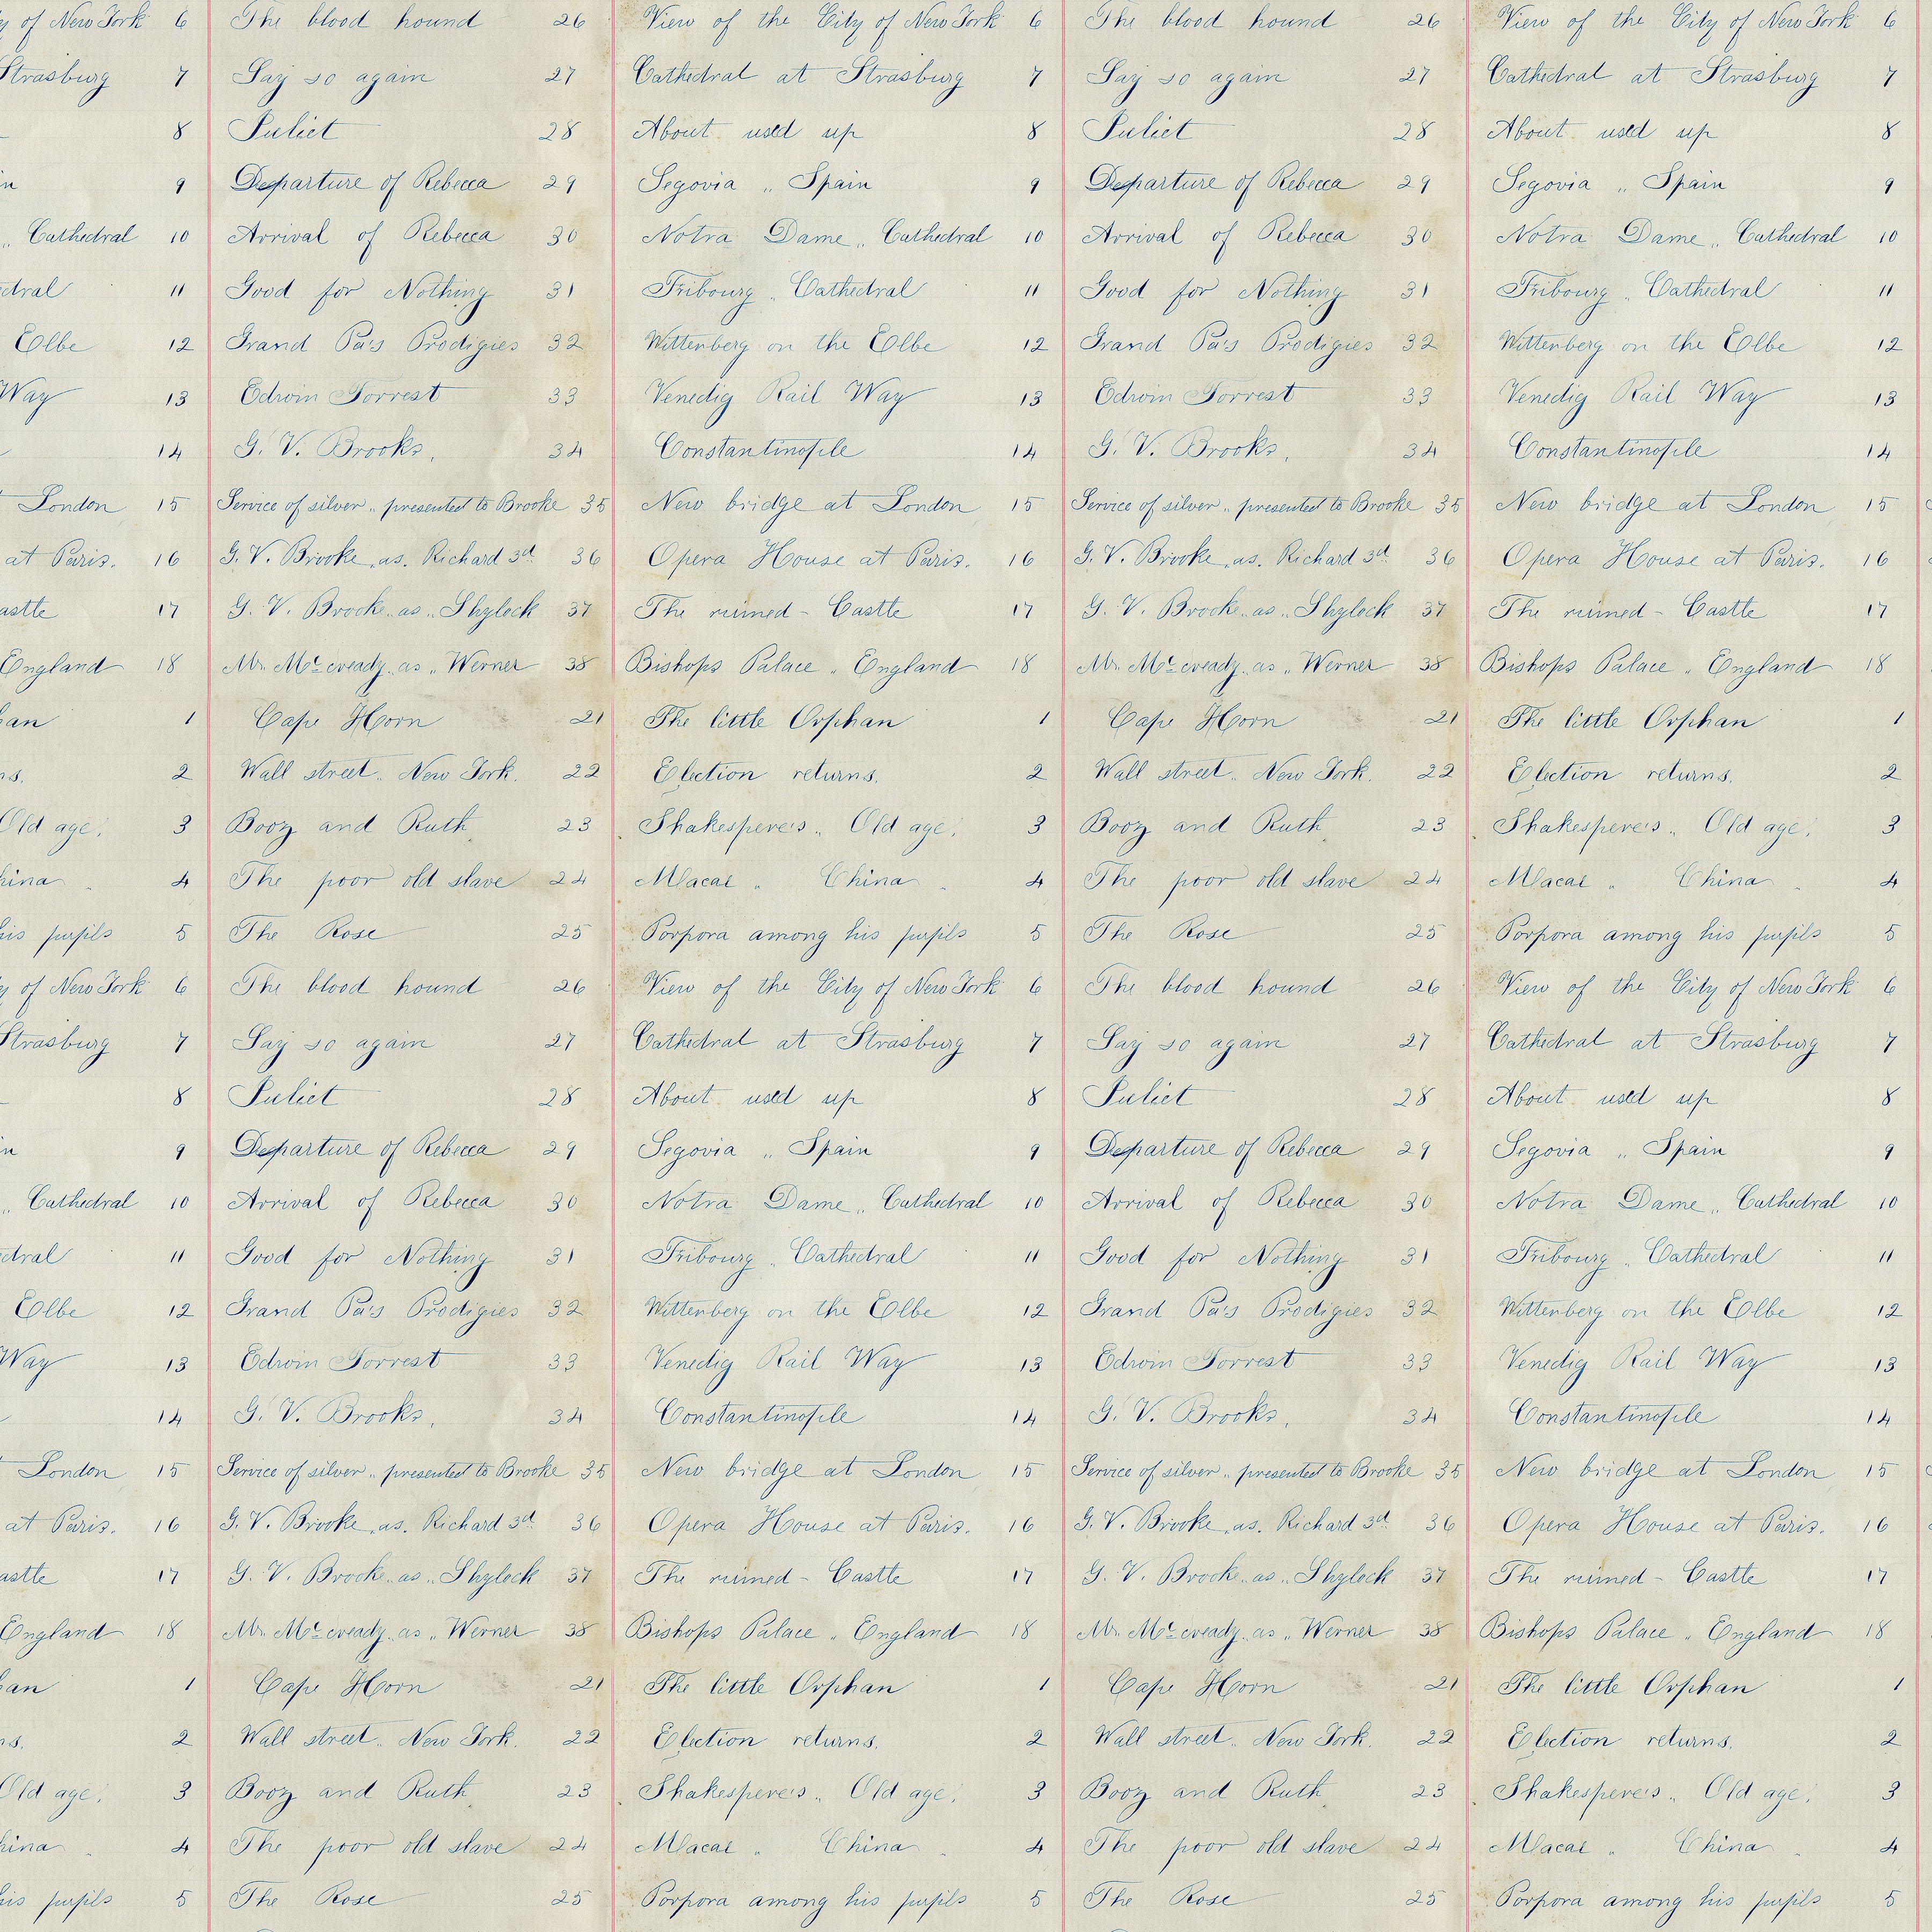 of New York 6 The blood hound 26 View of the City of New York 6 The blood hound 26 View of the City of New York 6
Strasburg 7 Say so again 27 Cathedral at Strasburg 7 Say so again 27 Cathedral at Strasburg 7
8 Juliet 28 About used up 8 Juliet 28 About used up 8
9 Departure of Rebecca 29 Segovia „ Spain 9 Departure of Rebecca 29 Segovia „ Spain 9
„ Cathedral 10 Arrival of Rebecca 30 Notra Dame „ Cathedral 10 Arrival of Rebecca 30 Notra Dame „ Cathedral 10
dral 11 Good for Nothing 31 Fribourg „ Cathedral 11 Good for Nothing 31 Fribourg „ Cathedral 11
Elbe 12 Grand Pa's Prodigies 32 Wittenberg on the Elbe 12 Grand Pa's Prodigies 32 Wittenberg on the Elbe 12
Way 13 Edwin Forrest 33 Venedig Rail Way 13 Edwin Forrest 33 Venedig Rail Way 13
14 G. V. Brooks. 34 Constantinople 14 G. V. Brooks. 34 Constantinople 14
London 15 Service of silver „ presented to Brooke 35 New bridge at London 15 Service of silver „ presented to Brooke 35 New bridge at London 15
at Paris. 16 G. V. Brooke „ as. Richard 3d 36 Opera House at Paris. 16 G. V. Brooke „ as. Richard 3d 36 Opera House at Paris. 16
astle 17 G. V. Brooke „ as „ Shylock 37 The ruined - Castle 17 G. V. Brooke „ as „ Shylock 37 The ruined - Castle 17
England 18 Mr. Mc cready „ as „ Werner 38 Bishops Palace „ England 18 Mr. Mc cready „ as „ Werner 38 Bishops Palace „ England 18
han 1 Cape Horn 21 The little Orphan 1 Cape Horn 21 The little Orphan 1
ns. 2 Wall street „ New York. 22 Election returns. 2 Wall street „ New York. 22 Election returns. 2
Old age. 3 Booz and Ruth 23 Shakespere's „ Old age. 3 Booz and Ruth 23 Shakespere's „ Old age. 3
hina 4 The poor old slave 24 Macai „ China 4 The poor old slave 24 Macai „ China 4
his pupils 5 The Rose 25 Porpora among his pupils 5 The Rose 25 Porpora among his pupils 5
of New York 6 The blood hound 26 View of the City of New York 6 The blood hound 26 View of the City of New York 6
Strasburg 7 Say so again 27 Cathedral at Strasburg 7 Say so again 27 Cathedral at Strasburg 7
8 Juliet 28 About used up 8 Juliet 28 About used up 8
9 Departure of Rebecca 29 Segovia „ Spain 9 Departure of Rebecca 29 Segovia „ Spain 9
„ Cathedral 10 Arrival of Rebecca 30 Notra Dame „ Cathedral 10 Arrival of Rebecca 30 Notra Dame „ Cathedral 10
dral 11 Good for Nothing 31 Fribourg „ Cathedral 11 Good for Nothing 31 Fribourg „ Cathedral 11
Elbe 12 Grand Pa's Prodigies 32 Wittenberg on the Elbe 12 Grand Pa's Prodigies 32 Wittenberg on the Elbe 12
Way 13 Edwin Forrest 33 Venedig Rail Way 13 Edwin Forrest 33 Venedig Rail Way 13
14 G. V. Brooks. 34 Constantinople 14 G. V. Brooks. 34 Constantinople 14
London 15 Service of silver „ presented to Brooke 35 New bridge at London 15 Service of silver „ presented to Brooke 35 New bridge at London 15
at Paris. 16 G. V. Brooke „ as. Richard 3d 36 Opera House at Paris. 16 G. V. Brooke „ as. Richard 3d 36 Opera House at Paris. 16
astle 17 G. V. Brooke „ as „ Shylock 37 The ruined - Castle 17 G. V. Brooke „ as „ Shylock 37 The ruined - Castle 17
England 18 Mr. Mc cready „ as „ Werner 38 Bishops Palace „ England 18 Mr. Mc cready „ as „ Werner 38 Bishops Palace „ England 18
han 1 Cape Horn 21 The little Orphan 1 Cape Horn 21 The little Orphan 1
ns. 2 Wall street „ New York. 22 Election returns. 2 Wall street „ New York. 22 Election returns. 2
Old age. 3 Booz and Ruth 23 Shakespere's „ Old age. 3 Booz and Ruth 23 Shakespere's „ Old age. 3
hina 4 The poor old slave 24 Macai „ China 4 The poor old slave 24 Macai „ China 4
his pupils 5 The Rose 25 Porpora among his pupils 5 The Rose 25 Porpora among his pupils 5